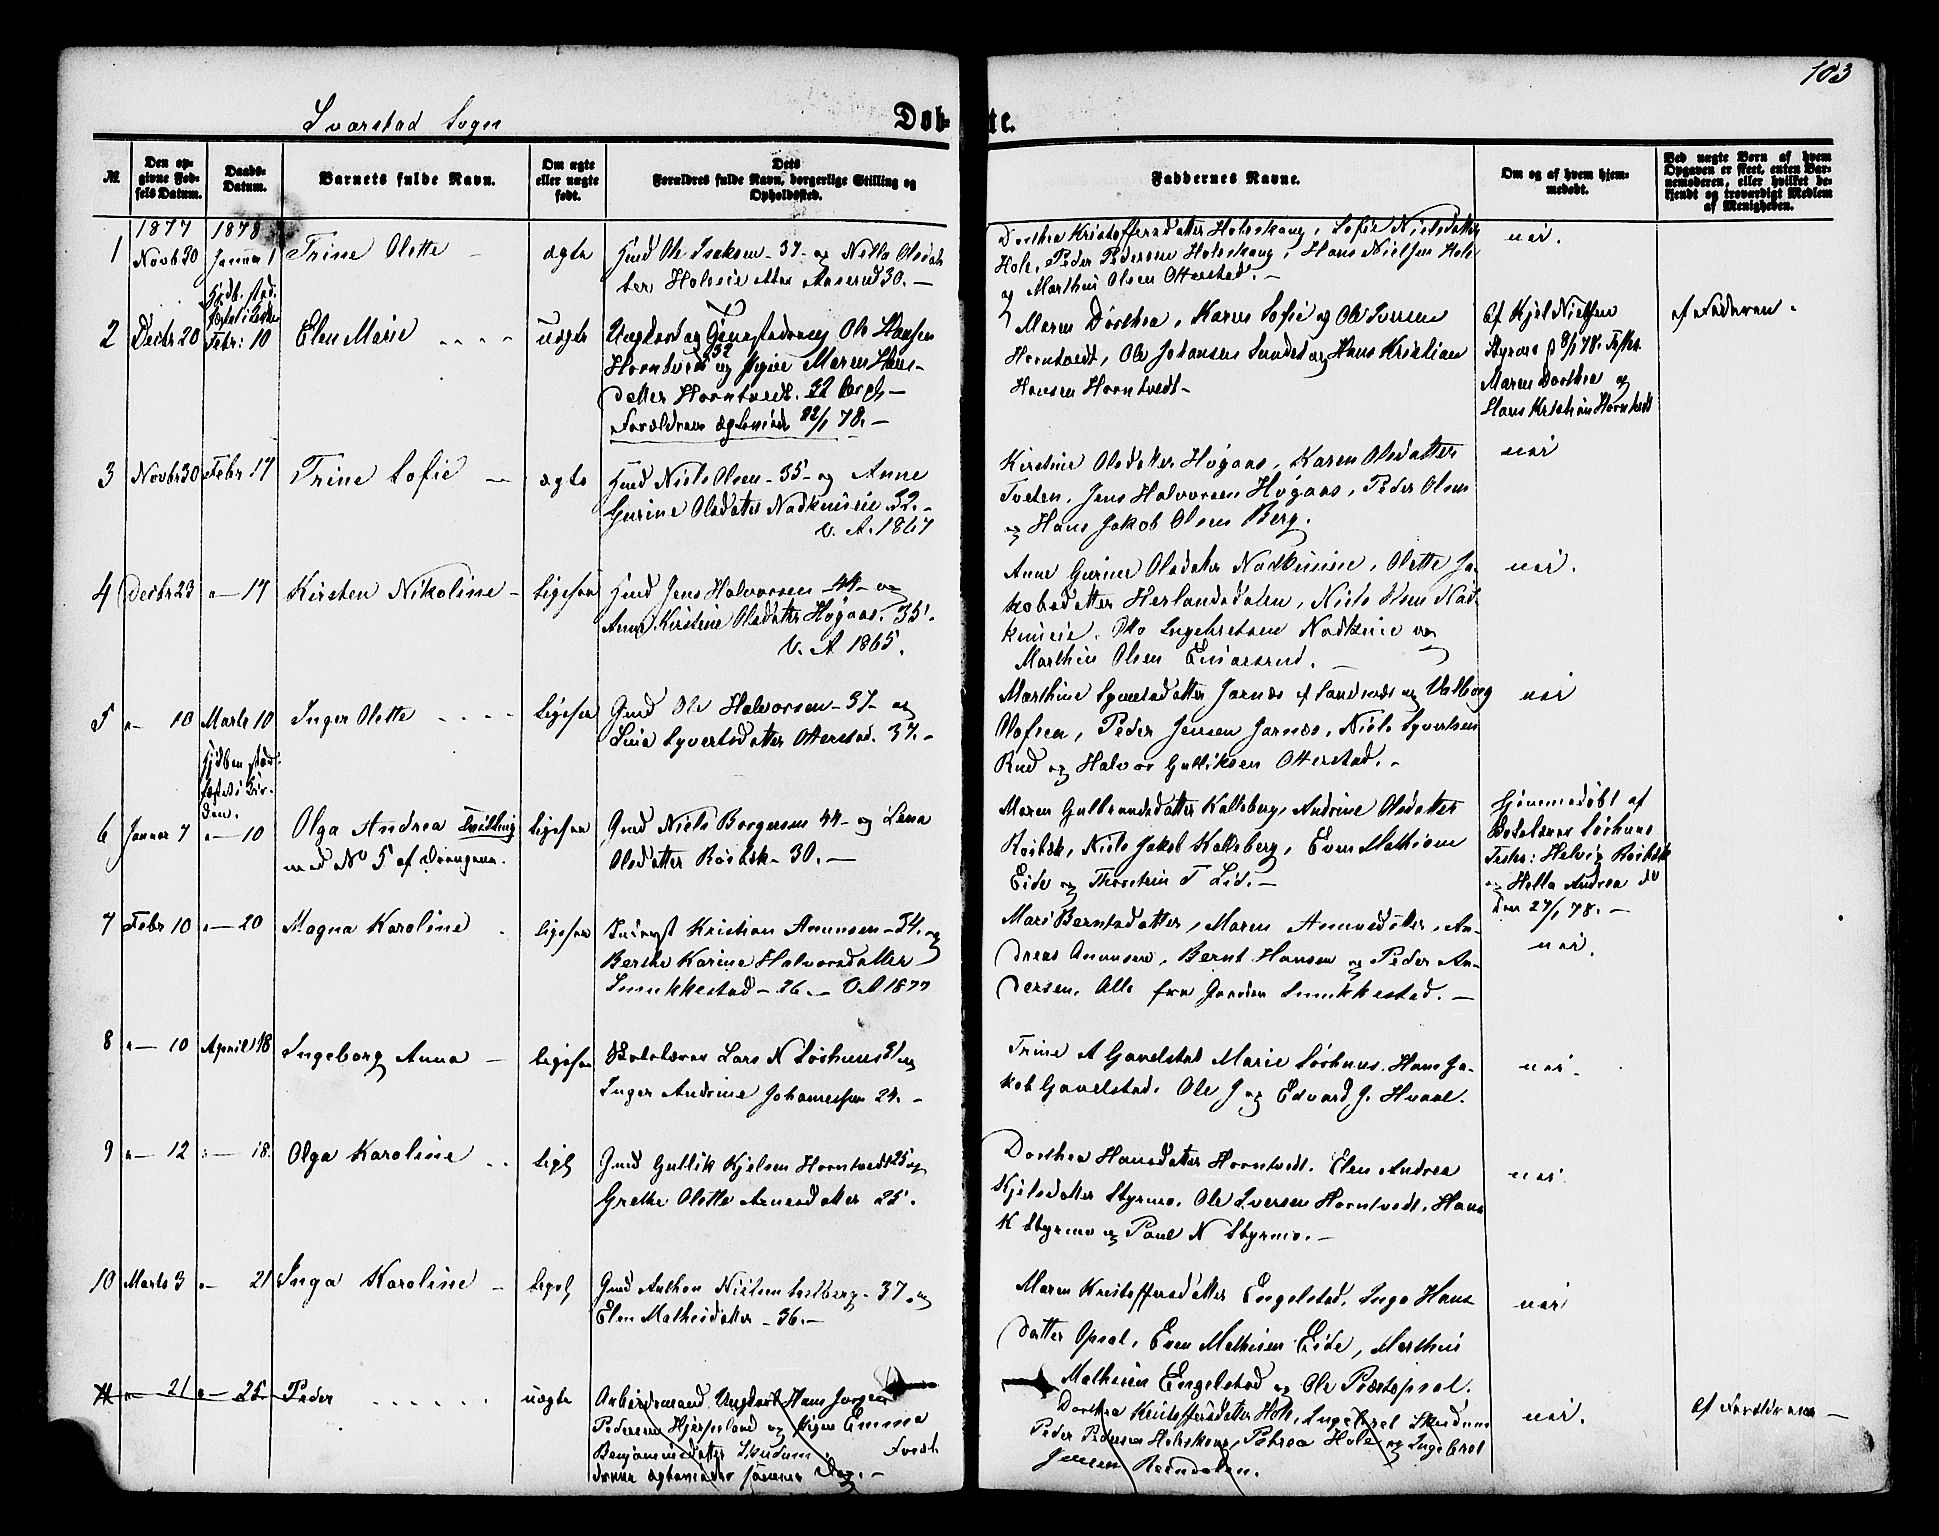 103
Svarstad Sogn
Døb-
te.
№
Den op-
givne Fød-
sels Datum.
Daabs-
Datum.
Barnets fulde Navn.
Om ægte
eller uægte
født.
Dets
Forældres fulde Navn, borgerlige Stilling og
Opholdssted.
Faddernes Navne.
Om og af hvem hjem-
medøbt.
Ved uægte Børn af hvem
Opgaven er skeet, enten Bar-
nemoderen, eller hvilket be-
kjendt og troværdigt Medlem
af Menigheden.
1877 1878
1 Novb 30 Januar 1 Trine Olette ægte
Gmd Ole Isaksen 37 og Nilla Olsdat
ter Holseie 30.
Dorthea Kristoffersdatter Holeskoug, Sofie Nielsdatter
Hole, Peder Pedersen Holeskoug, Hans Nielsen Hole
og Marthin Olsen Otterstad.
nei.
2 Decbr 20 Febr: 10 Elen Marie uægte
Ungkarl og Ole Hansen
Horntvedt og Pigen Maren Hans-
datter Horntvedt. 32
Forældrene 22/1 78.
Maren Dorthea, Karen Sofie og Ole Iversen
Horntvedt, Ole Johansen Sundet og Hans Kristian
Hansen Horntvedt
Af Kjel Nielsen
Styrmo 8/1 78.
Maren Dorthea og
Hans Kristian Horntvedt
af Faderen.
3 Novbr 30 Febr 17 Trine Sofie ægte
Gmd Niels Olsen 35 og Anne
Gurine Olsdatter 32.
V. A. 1867
Kirstine Olsdatter Høgaas, Karen Olsdatter
Tveten, Jens Halvorsen Høgaas, Peder Olsen
og Hans Jakob Olsen Berg.
nei
4 Decbr 23 17 Kirsten Nikoline ligesaa
Gmd Jens Halvorsen 44 og
Anne Kirstine Olsdatter Høgaas. 35.
V. A 1865.
Anne Gurine Olsdatter, Olette Ja-
kobsdatter Herlandsdalen, Niels Olsen
Otto Ingebretsen og
Marthin Olsen
nei.
5 10 Marts 10 Inger Olette ligesaa
Gmd Ole Halvorsen 37 og
Lina Syvertsdatter Otterstad. 37.
Marthine Syvertsdatter Jarnæs og Valborg
Olsen, Peder Jensen Jarnæs, Niels Syvertsen
Rud og Halvor Gulliksen Otterstad.
nei
6 Januar 7 10 Olga Andrea Tvilling
med № 5 af Drengene.
ligesaa
Gmd Niels Borgersen 44 og Lena
Olsdatter 30.
Maren Gulbrandsdatter Kallsberg, Andrine Olsdatter
Niels Jakob Kallsberg, Even Mathisen
Eide og Thorstein T Lid.
Hjemmedøbt af
Sørhuus
Andrea
den 27/1 78.
7 Febr 10 20 Magna Karoline ligesaa
Kristian Amunsen 34. og
Berthe Karine Halvorsdatter
Snukkestad 26. V A 1877
Mari Berntsdatter, Maren An-
dreas Amunsen, Bernt Hansen og Peder An-
dersen. Alle fra Gaarden Snukkestad.
nei.
8 10 April 18 Ingeborg Anna ligesaa
Lars N Sørhuus 31 og
Inger Andrine Johannesen 24.
Trine A Gavelstad Marie Sørhuus. Hans Ja-
kob Gavelstad. Ole J og Edvard J. Hvaal.
nei.
9 12 18 Olga Karoline
Gmd Gullik Kjelsen Horntvedt 25 og
Grethe Olette Arnesdatter 25.
Dorthea Hansdatter Horntvedt. Elen Andrea
Kjelsdatter Styrmo. Ole Iversen Horntvedt. Hans
K Styrmo og Paul N Styrmo.
nei
10 Marts 3 21 Inga Karoline
Gmd Anthon Nielsen 37. og
Elen Mathisdatter 36.
Maren Kristoffersdatter Engelstad, Inga Hans
datter Opsal, Even Mathisen Eide, Marthin
Mathisen Engelstad og Ole Opsal.
nei
11 21 25 Peder uægte
Arbeidsmand Ungkarl Hans Jørgen
Pedersen Hjerpeland og Pigen Emma
Benjaminsdatter Skudum. Foræl
drene samme Dag.
Dorthea Kristoffersdatter Hole, Ingebret Skudum
Peder Pedersen Holeskoug, Petrea Hole og Ingebret
Jensen
nei.
af Forældrene